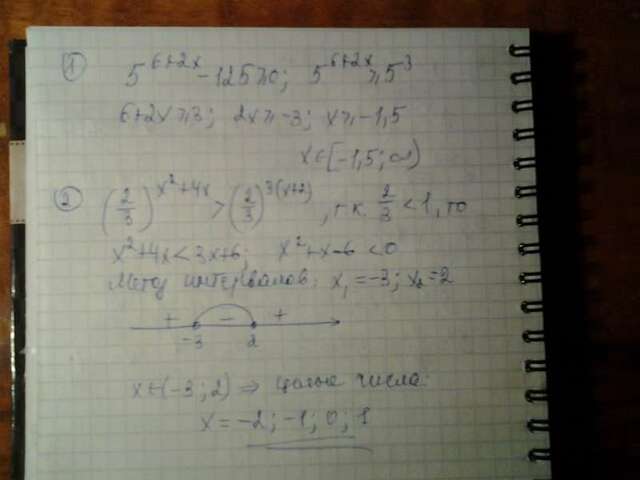 1) 5^(6+2x) - 125 ⩾ 0; 5^(6+2x) ⩾ 5^3
6+2x ⩾ 3; 2x ⩾ -3; x ⩾ -1,5
x ∈ [-1,5; ∞)
2) (2/3)^(x²+4x) > (2/3)^(3(x+2)), т.к. 2/3 < 1, то
x²+4x < 3x+6; x²+x-6 < 0
Метод интервалов: x₁ = -3; x₂ = 2
+ - +
-3 2
x ∈ (-3; 2) ⇒ целые числа:
x = -2; -1; 0; 1